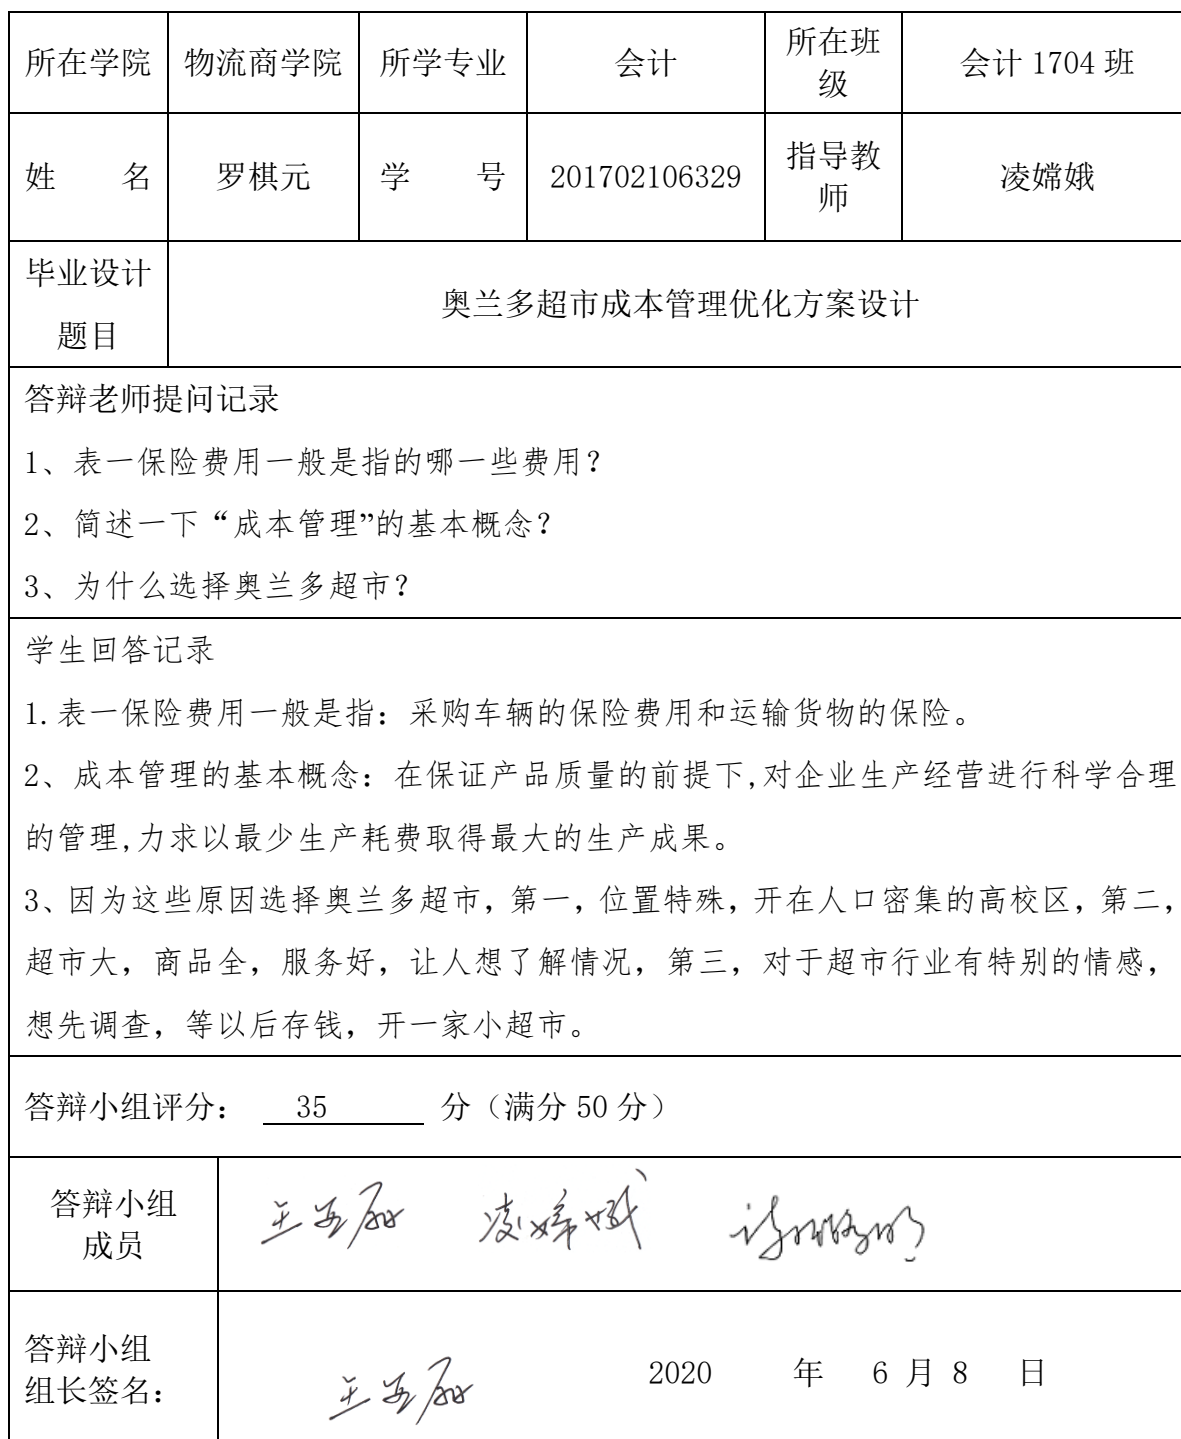 所在学院 物流商学院 所学专业 会计 所在班级 会计 1704 班
姓 名 罗棋元 学 号 201702106329 指导教师 凌嫦娥
毕业设计题目 奥兰多超市成本管理优化方案设计
答辩老师提问记录
1、表一保险费用一般是指的哪一些费用？
2、简述一下“成本管理”的基本概念？
3、为什么选择奥兰多超市？
学生回答记录
1.表一保险费用一般是指：采购车辆的保险费用和运输货物的保险。
2、成本管理的基本概念：在保证产品质量的前提下,对企业生产经营进行科学合理
的管理,力求以最少生产耗费取得最大的生产成果。
3、因为这些原因选择奥兰多超市，第一，位置特殊，开在人口密集的高校区，第二，
超市大，商品全，服务好，让人想了解情况，第三，对于超市行业有特别的情感，
想先调查，等以后存钱，开一家小超市。
答辩小组评分： 35 分（满分 50 分）
答辩小组成员 凌嫦娥
答辩小组
组长签名： 2020 年 6 月 8 日